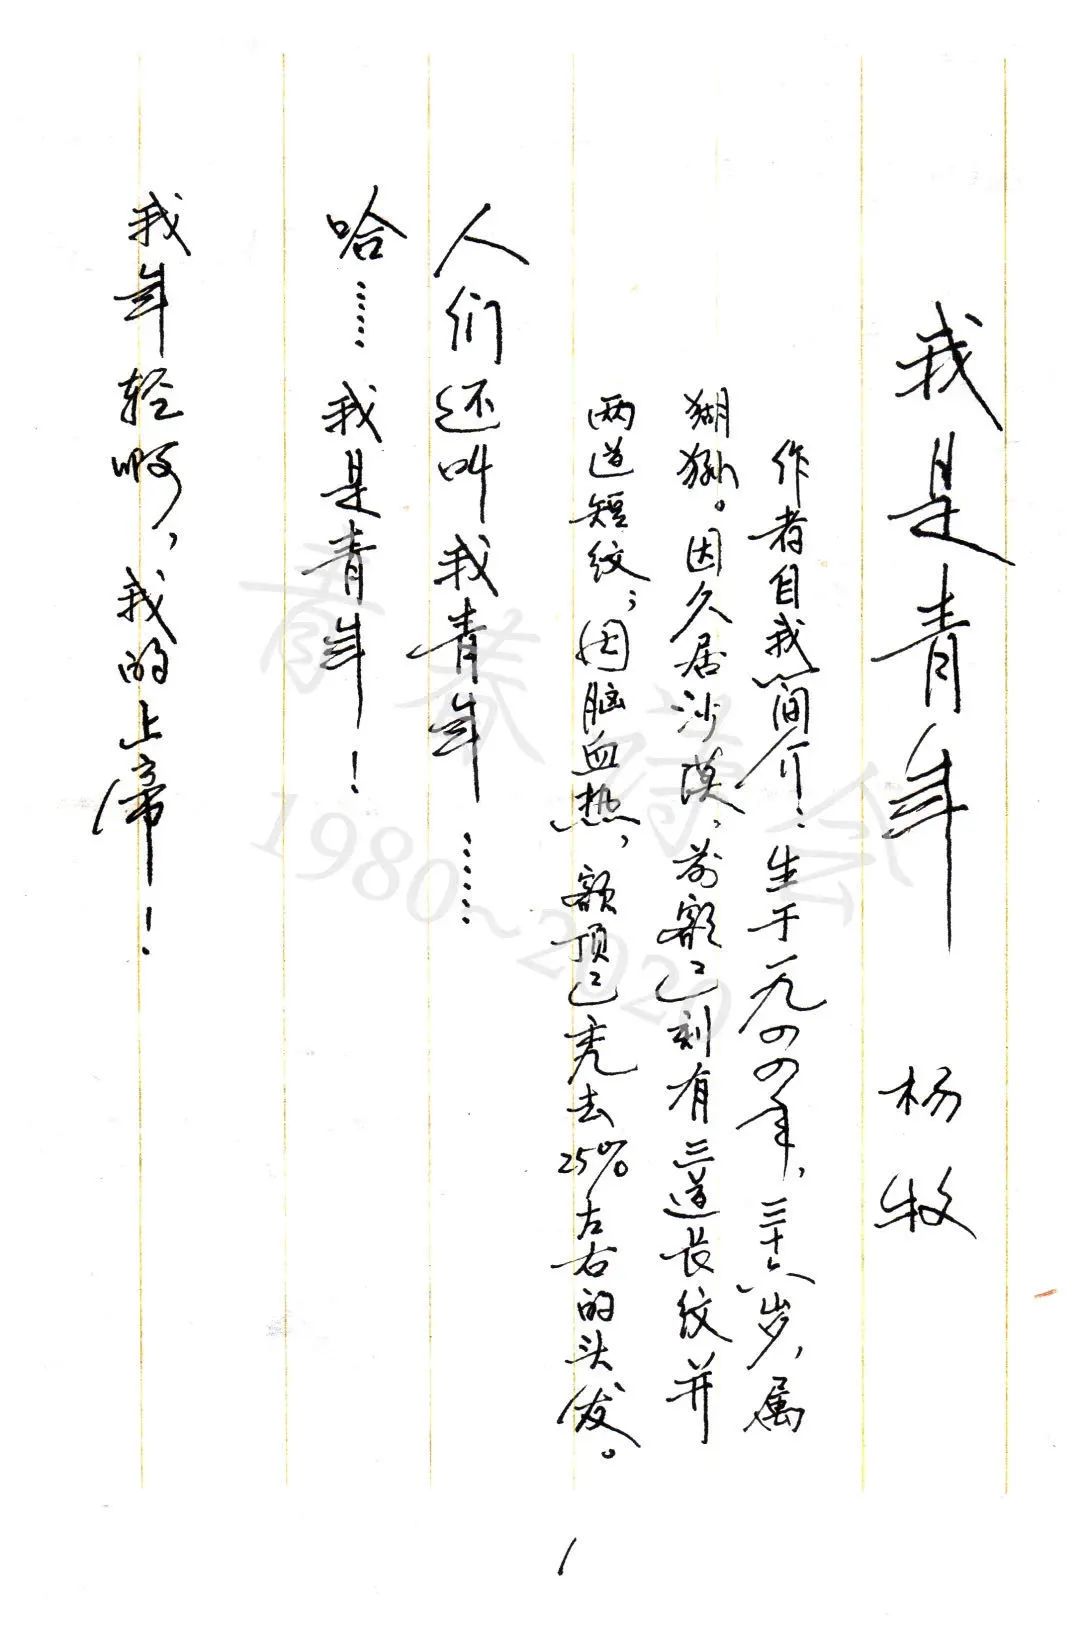 我是青年 杨牧
作者自我简介：生于一九四四年，三十六岁，属
猢狲。因久居沙漠，前额已刻有三道长纹并
两道短纹；因脑血热，额顶已秃去25%左右的头发。
人们还叫我青年……
哈……我是青年！
我年轻啊，我的上帝！
1
青春诗会
1980~2020